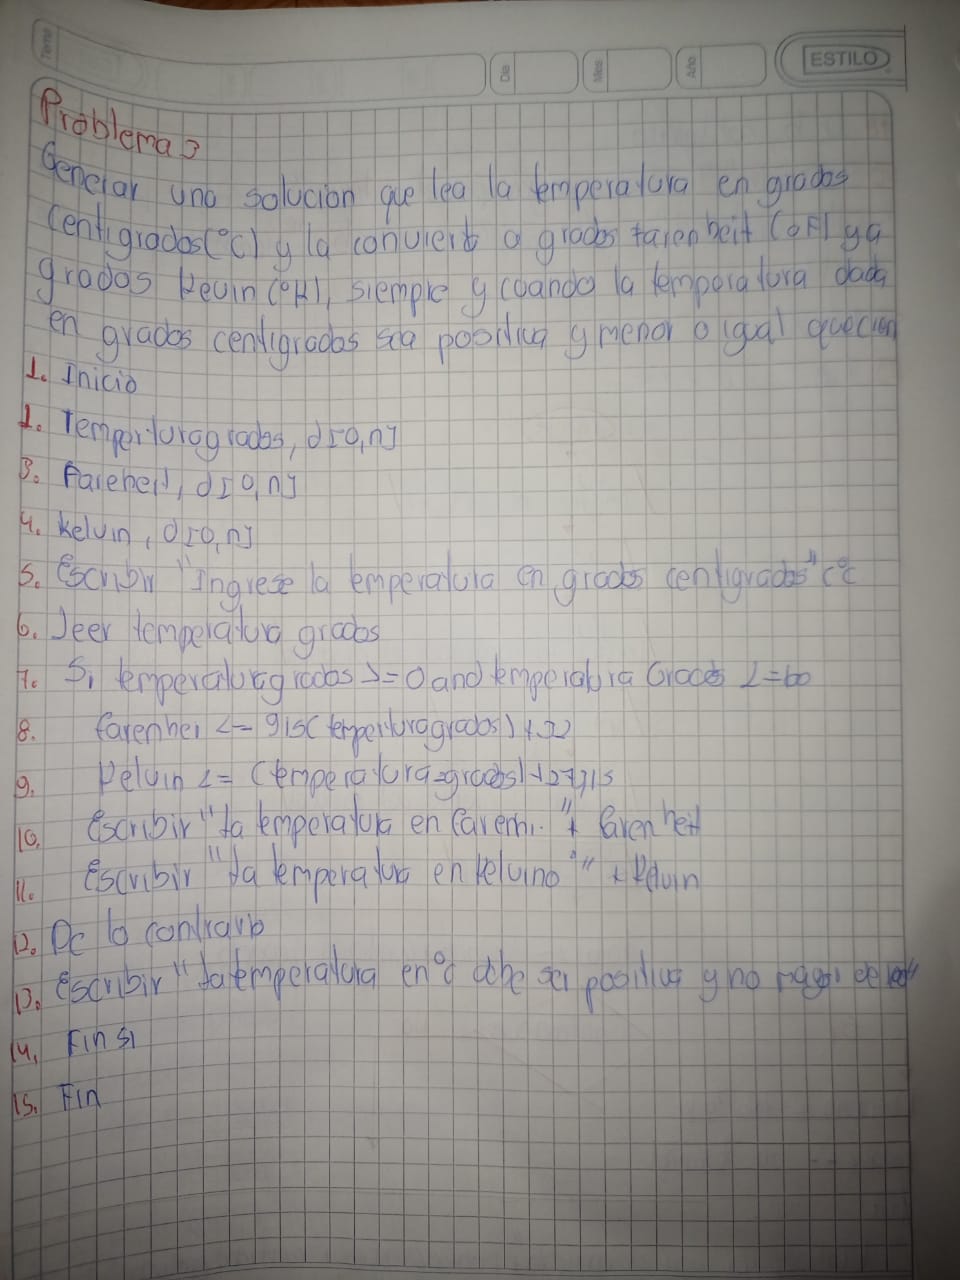 Tema
Dia
Mes
Año
ESTILO
Problema 3
Generar una solucion que lea la temperatura en grados
centigrados (°C) y la convierta a grados farenheit (°F) y a
grados Kevin (°K), siempre y cuando la temperatura dada
en grados centigrados sea positiva y menor o igual que cien
1. Inicio
2. Temperturagrados, d[0,n]
3. Fareheit, d[0,n]
4. Kelvin, d[0,n]
5. Escribir "Ingrese la temperatura en grados centigrados" (°c
6. Leer temperatura grados
7. Si temperaturagrados >=0 and temperatura Grados <=100
8. farenhei <= 9/5( temperturagrados) +32
9. Kelvin <= (temperatura-grados)+273,15
10. Escribir "La temperatura en farenhi. " + farenheit
11. Escribir "La temperatura en kelvin " + Kelvin
12. De lo contrario
13. Escribir "La temperatura en °c debe ser positiva y no mayor de
14. Fin si
15. Fin